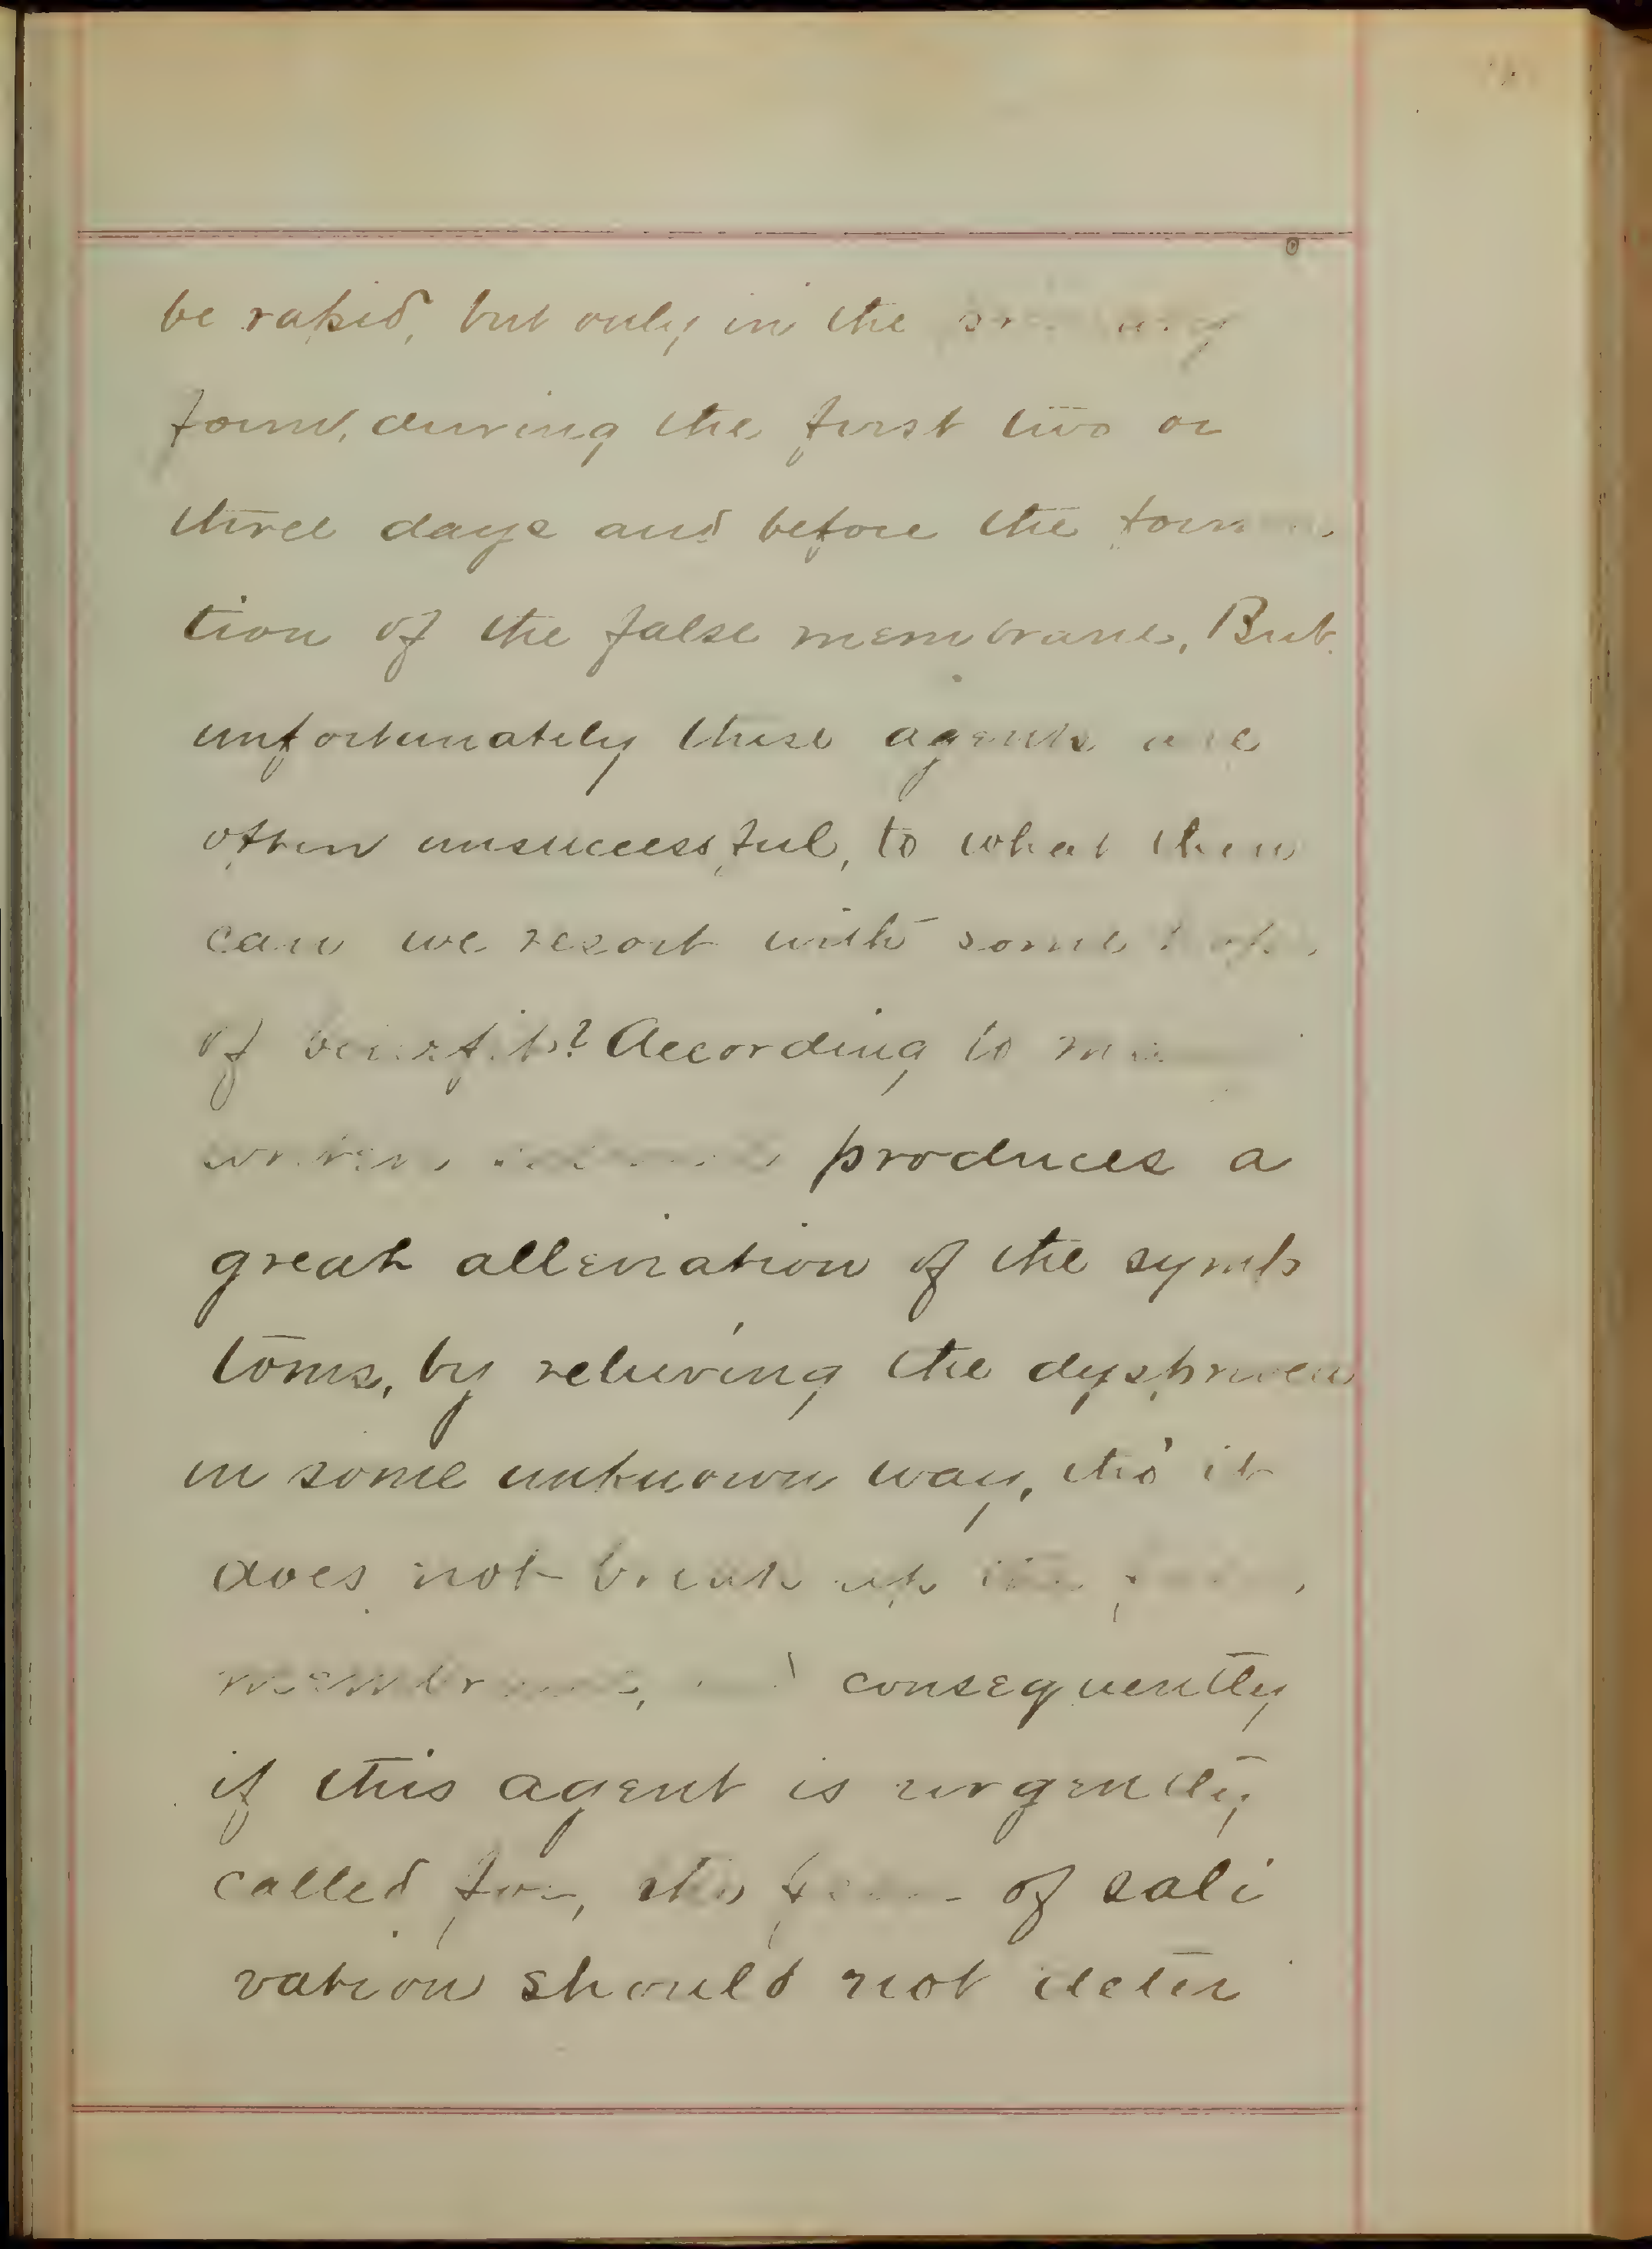 be rapid, but only in the
form, during the first two or
three days and before the forma
tion of the false membrane, But
unfortunately these agents are
often unsuccessful, to what then
can we resort with some hope
of benefit? According to
produces a
great alleviation of the symp
toms, by relieving the dyspnoea
in some unknown way, tho' it
does not break up the
membrane, and consequently
if this agent is urgently
called for, the of sali
vation should not deter